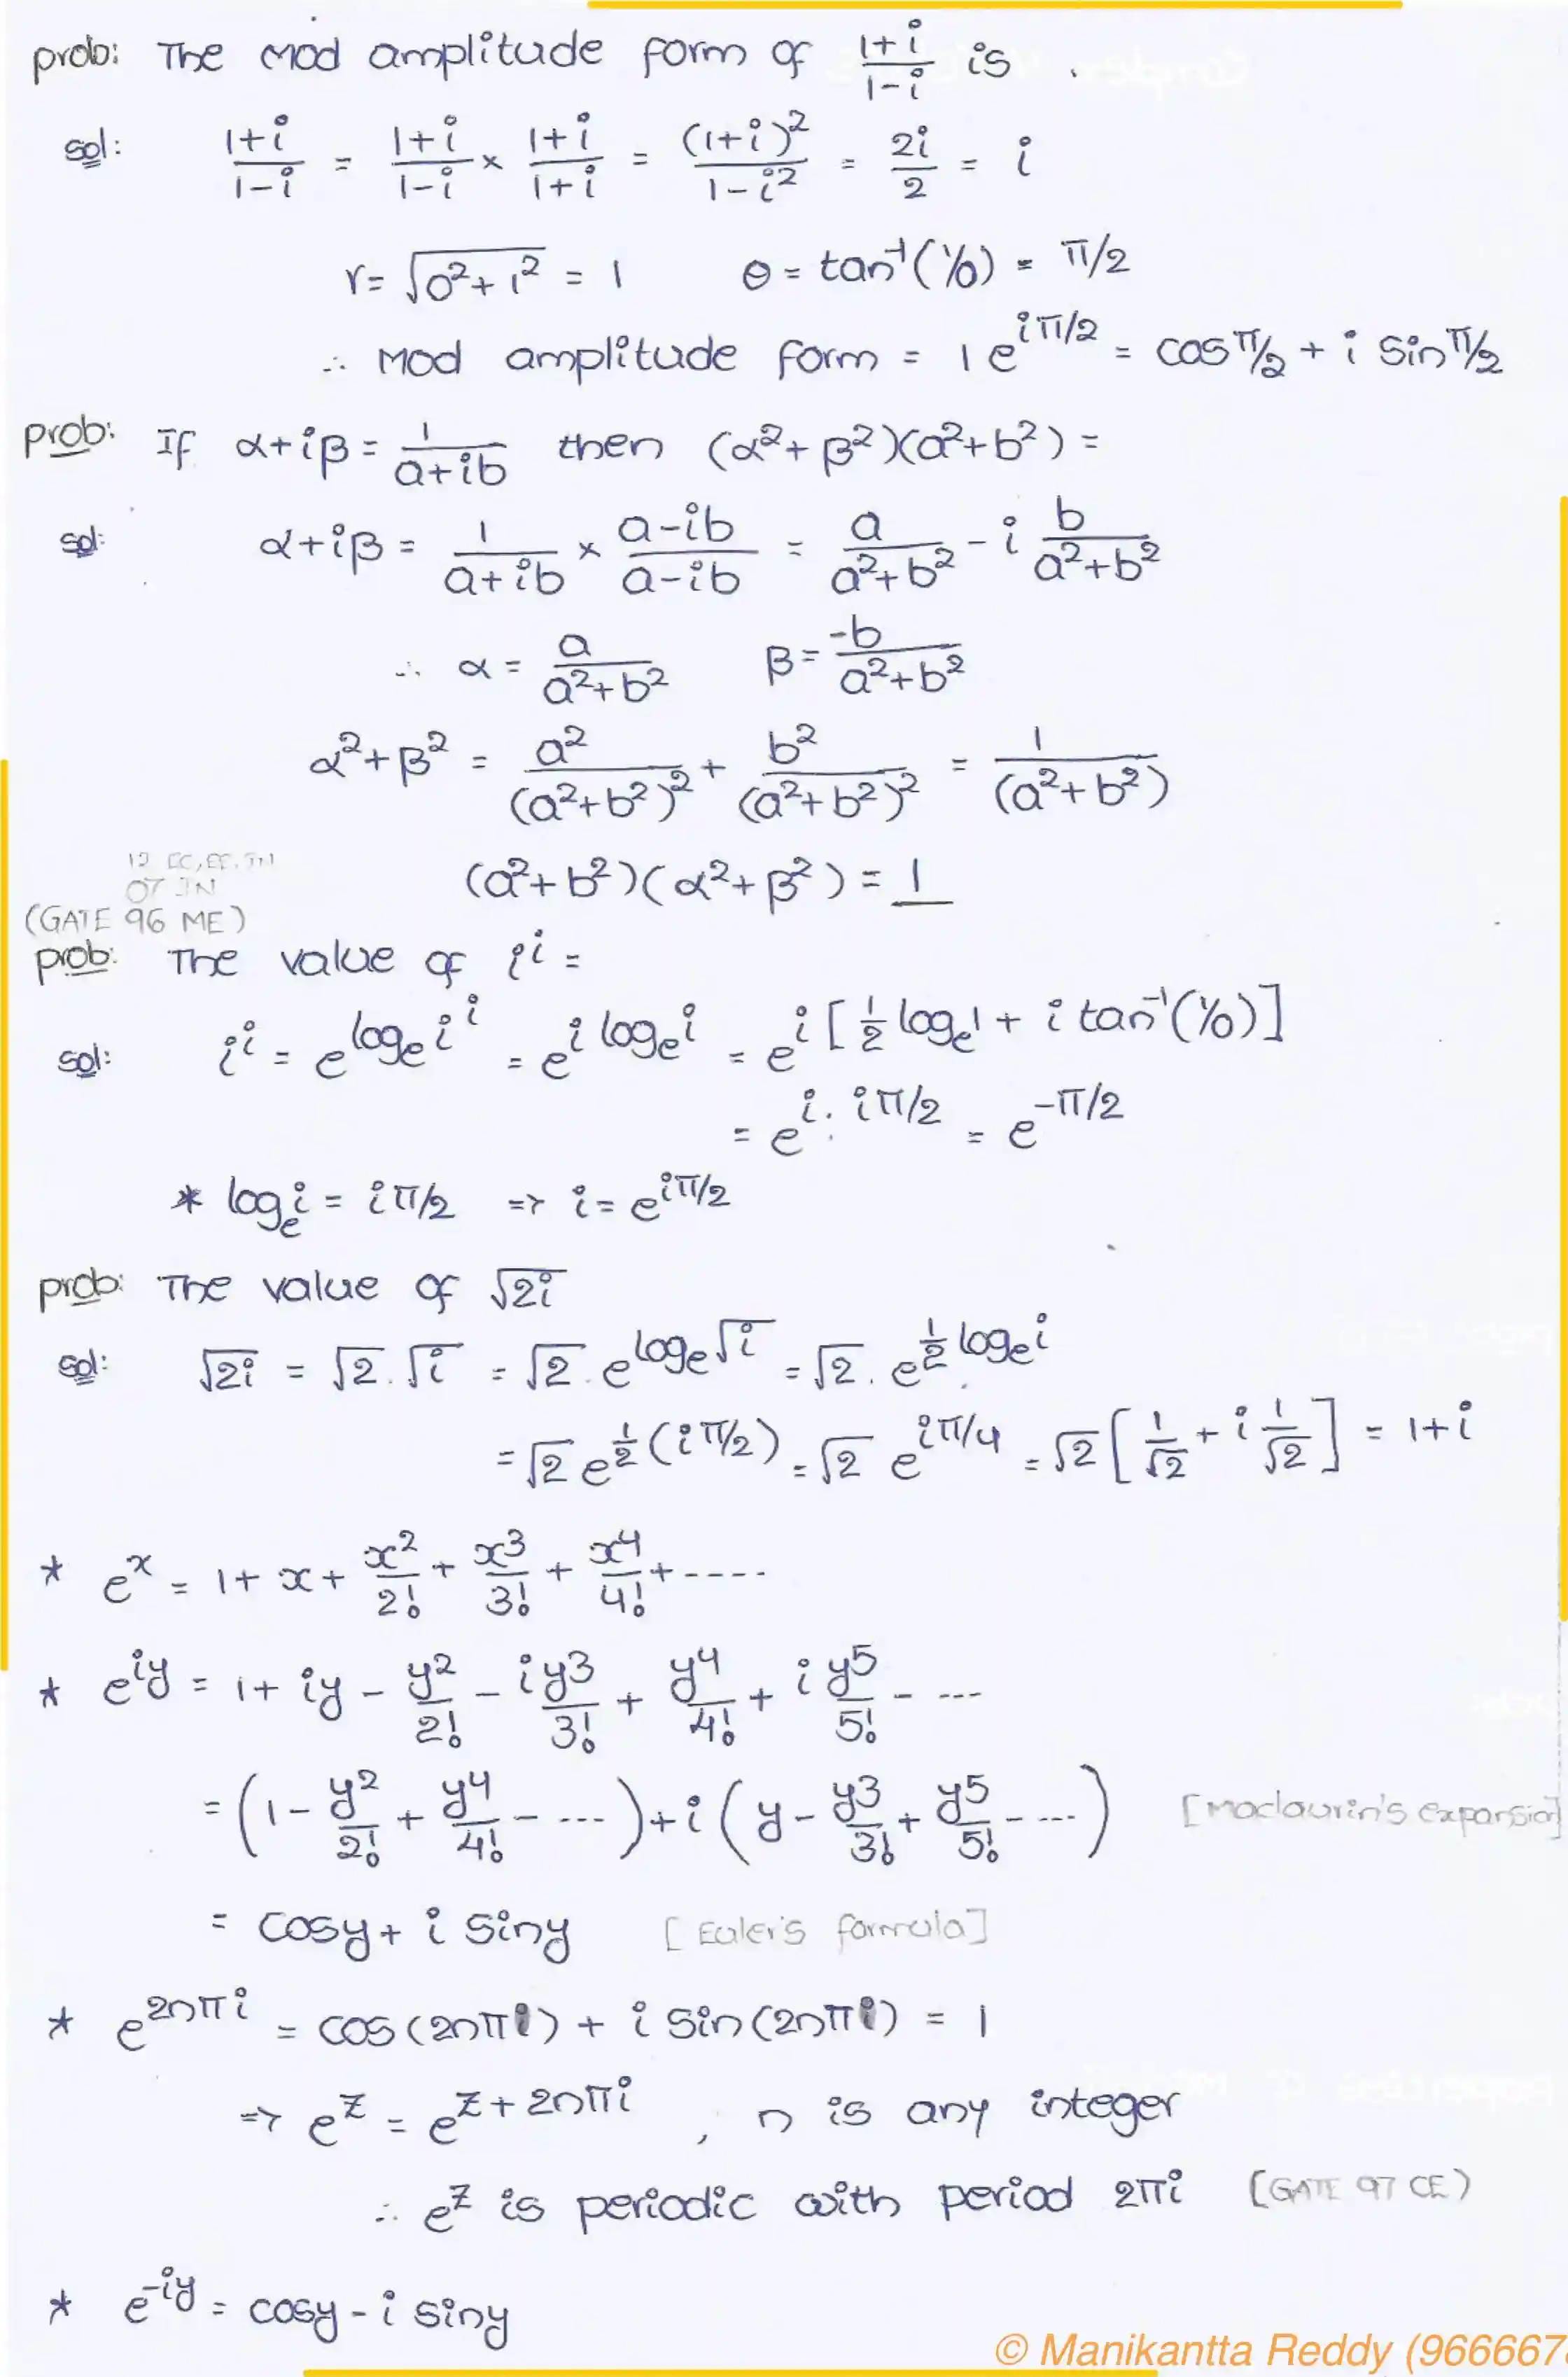 prob: The Mod amplitude form of (1+i)/(1-i) is .
sol: (1+i)/(1-i) = (1+i)/(1-i) × (1+i)/(1+i) = (1+i)²/(1-i²) = 2i/2 = i
r = √(0²+1²) = 1 θ = tan⁻¹(1/0) = π/2
∴ Mod amplitude form = 1 e^(iπ/2) = cos π/2 + i sin π/2
prob: If α+iβ = 1/(a+ib) then (α²+β²)(a²+b²) =
sol: α+iβ = 1/(a+ib) × (a-ib)/(a-ib) = a/(a²+b²) - i b/(a²+b²)
∴ α = a/(a²+b²) β = -b/(a²+b²)
α²+β² = a²/(a²+b²)² + b²/(a²+b²)² = 1/(a²+b²)
12 EC, EE, IN
07 IN
(a²+b²)(α²+β²) = 1
(GATE 96 ME)
prob: The value of i^i =
sol: i^i = e^(log_e i^i) = e^(i log_e i) = e^(i[½ log_e 1 + i tan⁻¹(1/0)])
= e^(i·iπ/2) = e^(-π/2)
* log_e i = iπ/2 => i = e^(iπ/2)
prob: The value of √2i
sol: √2i = √2.√i = √2.e^(log_e √i) = √2.e^(½ log_e i)
= √2 e^(½(iπ/2)) = √2 e^(iπ/4) = √2[1/√2 + i 1/√2] = 1+i
* e^x = 1 + x + x²/2! + x³/3! + x⁴/4! + ----
* e^(iy) = 1 + iy - y²/2! - iy³/3! + y⁴/4! + i y⁵/5! - ---
= (1 - y²/2! + y⁴/4! - ...) + i(y - y³/3! + y⁵/5! - ...) [Maclaurin's expansion]
= cosy + i siny [Euler's formula]
* e^(2nπi) = cos(2nπi) + i sin(2nπi) = 1
=> e^z = e^(z+2nπi) , n is any integer
∴ e^z is periodic with period 2πi (GATE 97 CE)
* e^(-iy) = cosy - i siny
© Manikantta Reddy (966667